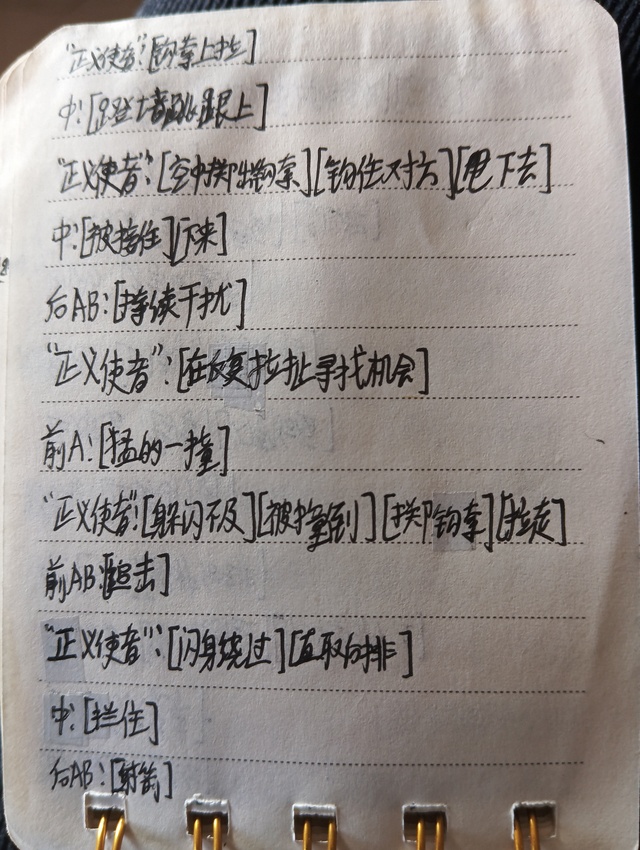 "正义使者":[钩索上拉]
中:[蹬墙跳跟上]
"正义使者":[空中掷出钩索][钩住对方][甩下去]
中:[被接住][下来]
后AB:[持续干扰]
"正义使者":[在反复拉扯寻找机会]
前A:[猛的一撞]
"正义使者":[躲闪不及][被撞倒][掷钩索][拉走]
前AB:[追击]
"正义使者":[闪身绕过][直取后排]
中:[拦住]
后AB:[射箭]